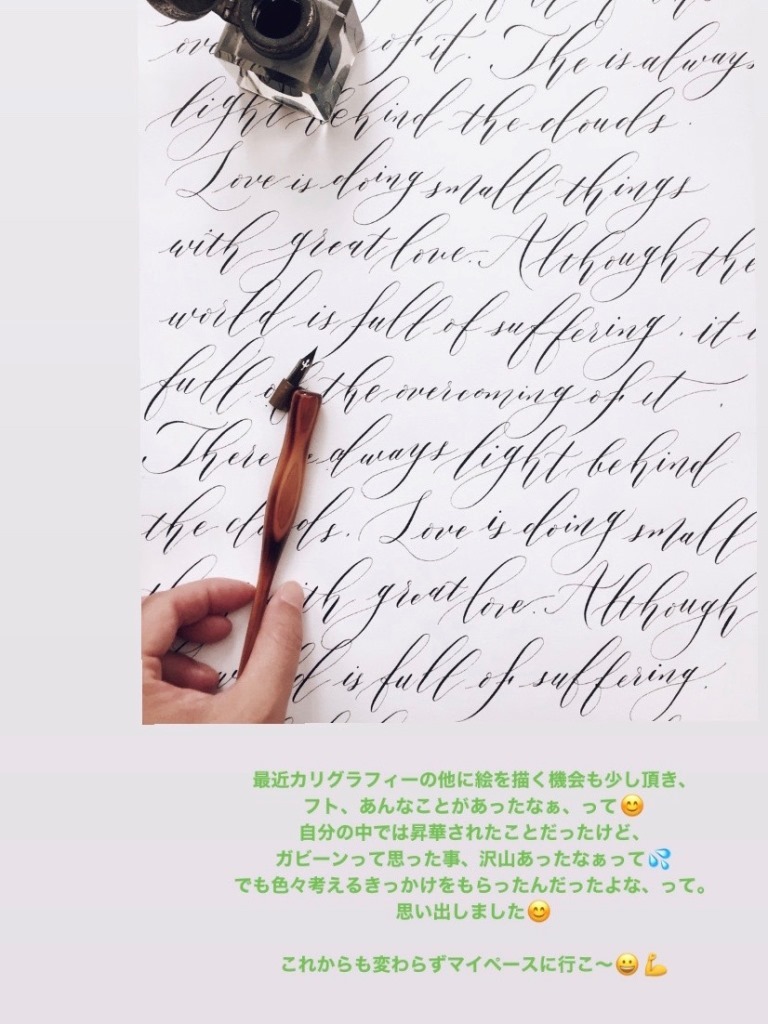 of it. The is always
light behind the clouds.
Love is doing small things
with great love. Although the
world is full of suffering. it
full of the overcoming of it.
There always light behind
the clouds. Love is doing small
with great love. Although
world is full of suffering.
最近カリグラフィーの他に絵を描く機会も少し頂き、
フト、あんなことがあったなぁ、って😊
自分の中では昇華されたことだったけど、
ガビーンって思った事、沢山あったなぁって💦
でも色々考えるきっかけをもらったんだったよな、って。
思い出しました😊
これからも変わらずマイペースに行こ〜😀💪